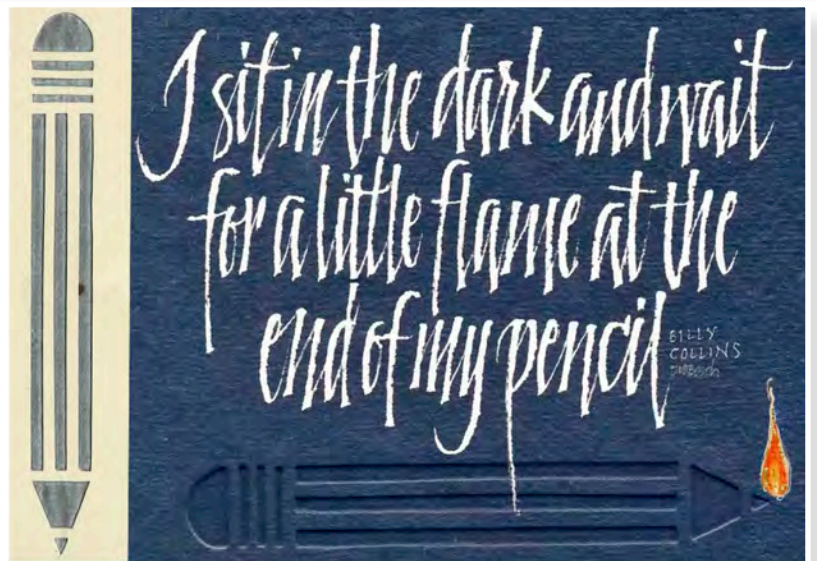 I sit in the dark and wait
for a little flame at the
end of my pencil
BILLY
COLLINS